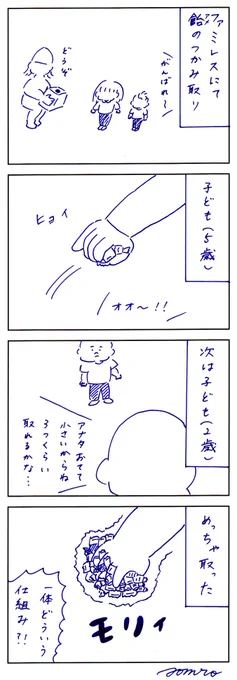 ファミレスにて
飴のつかみ取り
がんばれ〜
どうぞ
子ども(5歳)
ヒョイ
オオ〜!!
次は子ども(2歳)
アナタおてて
小さいからね
3つくらい
取れるかな…
めっちゃ取った
モリィ
一体どういう
仕組み?!